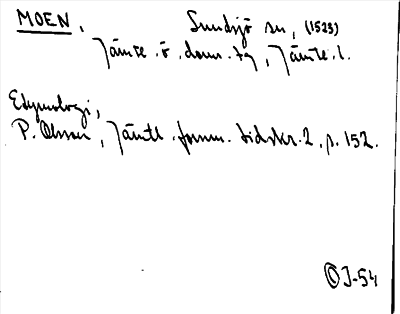 MOEN, Sundsjö sn, (1523)
Jämtl. ö. doms. tg, Jämtl. l.
Etymologi,
P. Olsson, Jämtl. fornm. tidskr. 2, s. 152.
OJ-54